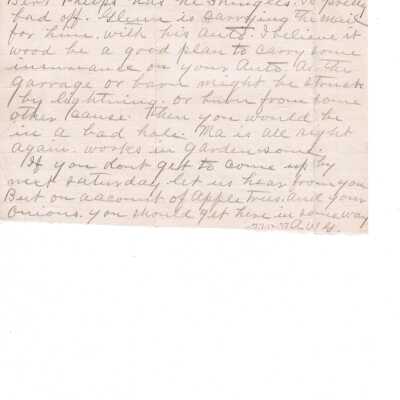 Bert Phelps has he Shingels. is pretty
bad off. Glenn is carrying the mail
for him. with his auto. I believe it
wood be a good plan to carry some
insurance on your Auto. As the
garrage or barn might be struck
by lightning. or burn from some
other cause. then you would be
in a bad hole. Ma is all right
again. works in garden some.
If you dont get to come up by
next saturday let us hear from you
But on account of Apple trees. and your
Onions. you should get here in some way